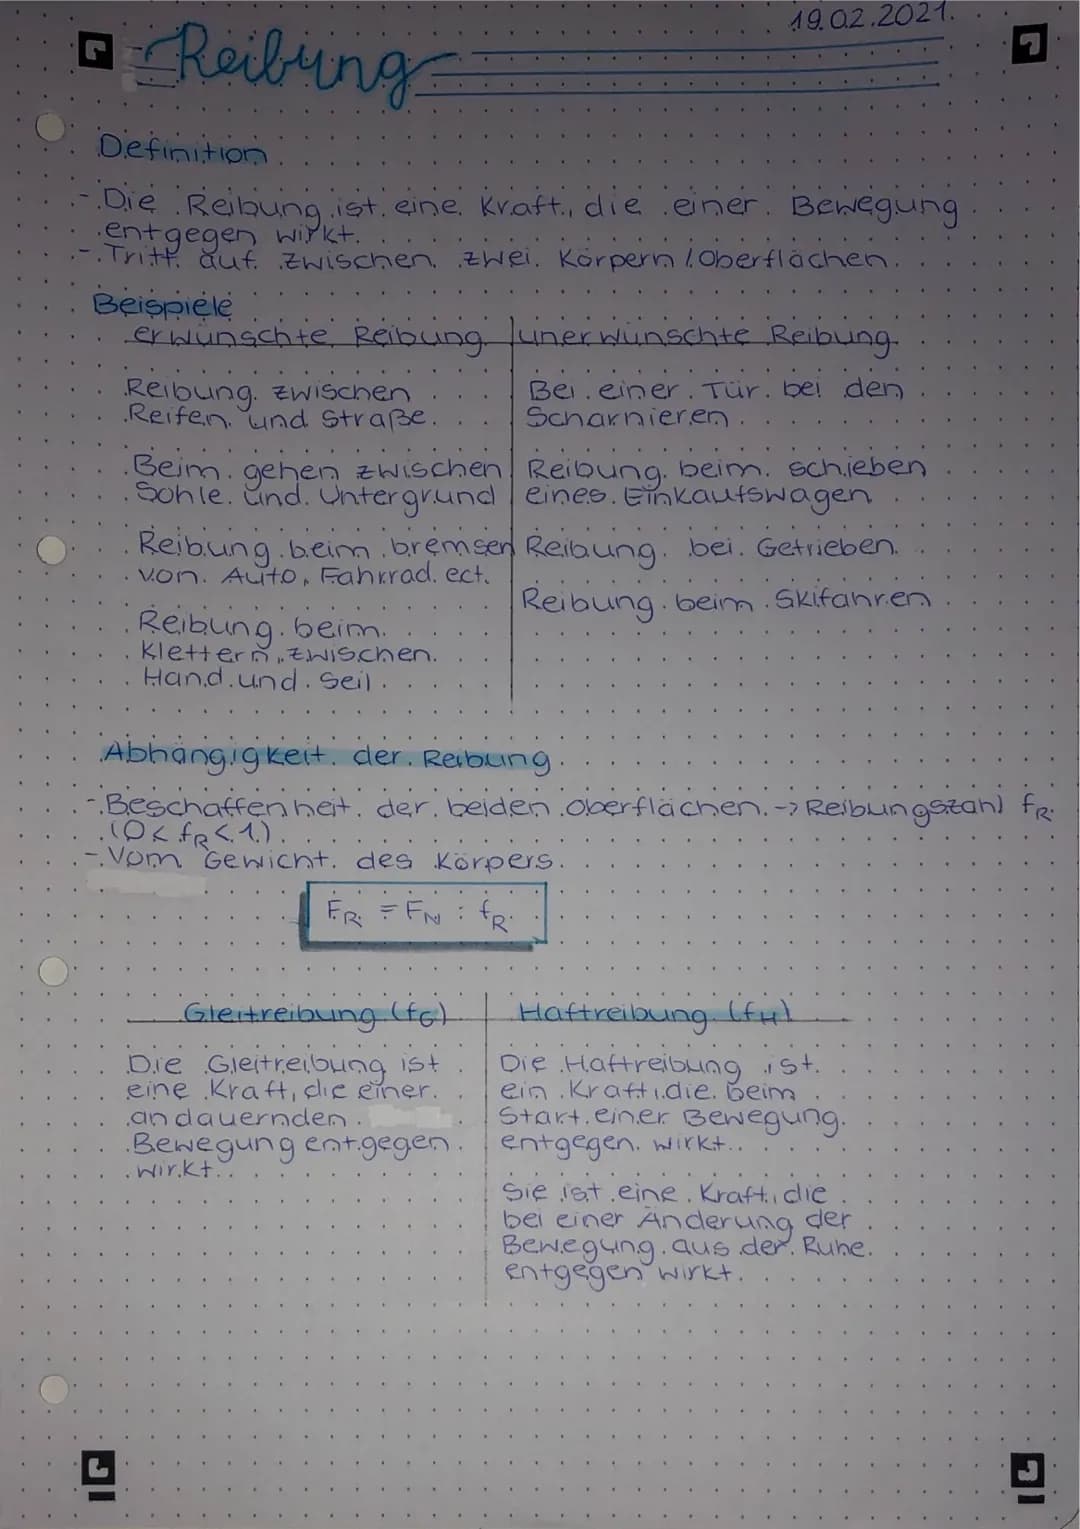 19.02.2021.
Reibung
Definition
- Die Reibung ist eine Kraft, die einer Bewegung
entgegen wirkt.
- Tritt auf zwischen zwei Körpern / Oberflächen.
Beispiele
erwünschte Reibung
Reibung zwischen
Reifen und Straße.
Beim gehen zwischen
Sohle und Untergrund
Reibung beim bremsen
von Auto, Fahrrad ect.
Reibung beim
Klettern zwischen
Hand und Seil
unerwünschte Reibung
Bei einer Tür bei den
Scharnieren
Reibung beim schieben
eines Einkaufswagen
Reibung bei Getrieben
Reibung beim Skifahren
Abhängigkeit der Reibung
- Beschaffenheit der beiden Oberflächen -> Reibungszahl fR
(0 < fR < 1)
- Vom Gewicht des Körpers
FR = FN : fR
Gleitreibung (fG)
Die Gleitreibung ist
eine Kraft, die einer
andauernden
Bewegung entgegen
wirkt.
Haftreibung (fH)
Die Haftreibung ist
ein Kraft, die beim
Start einer Bewegung
entgegen wirkt.
Sie ist eine Kraft, die
bei einer Änderung der
Bewegung aus der Ruhe
entgegen wirkt.